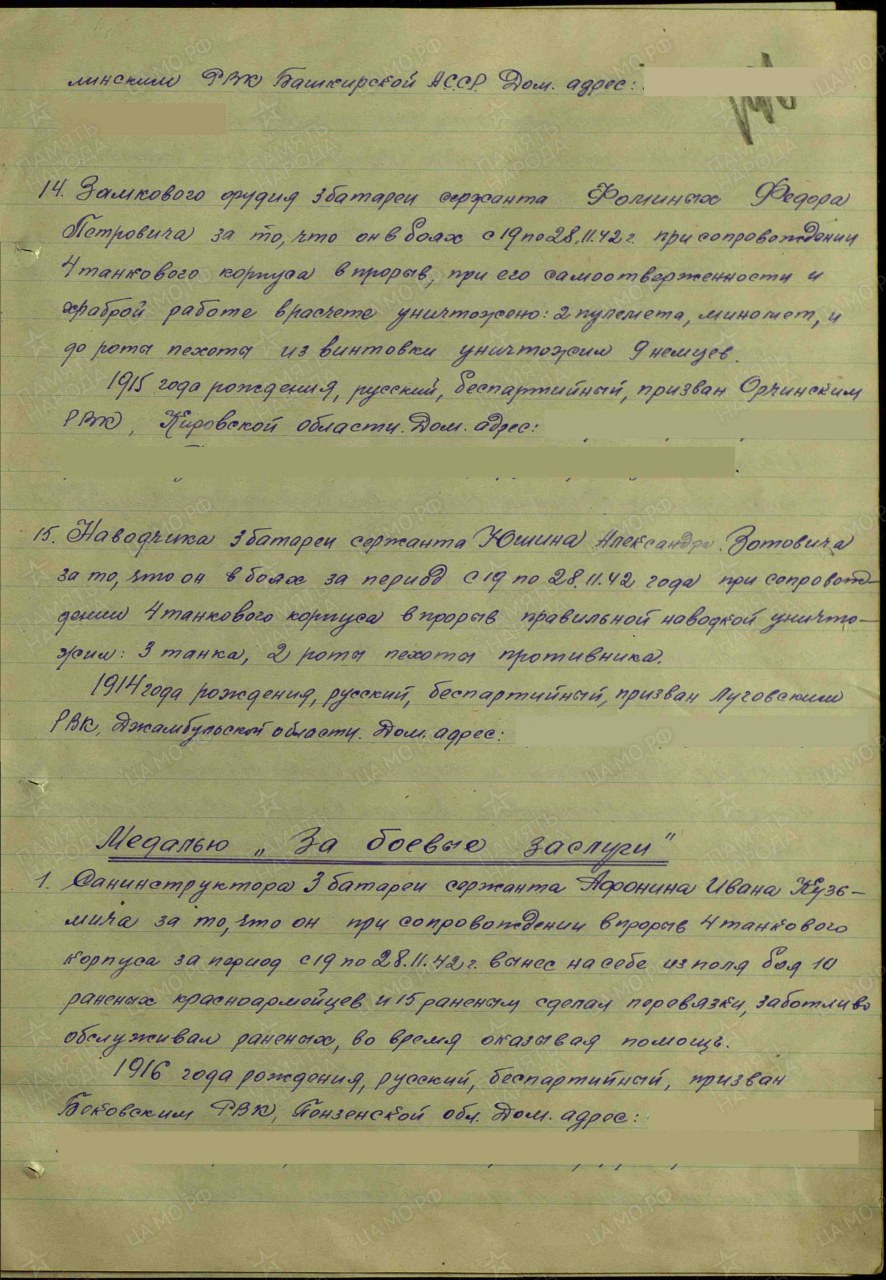 линским РВК Башкирской АССР. Дом. адрес:
14. Замкового орудия 3 батареи сержанта Фоминых Федора
Петровича за то, что он в боях с 19 по 28.11.42 г. при сопровождении
4 танкового корпуса в прорыв, при его самоотверженности и
храброй работе в расчете уничтожено: 2 пулемета, миномет, и
до роты пехоты из винтовки уничтожил 9 немцев.
1915 года рождения, русский, беспартийный, призван Оричинским
РВК, Кировской области. Дом. адрес:
15. Наводчика 3 батареи сержанта Юшина Александра Зотовича
за то, что он в боях за период с 19 по 28.11.42 года при сопровож-
дении 4 танкового корпуса в прорыв правильной наводкой уничто-
жил: 3 танка, 2 роты пехоты противника.
1914 года рождения, русский, беспартийный, призван Луговским
РВК, Джамбульской области. Дом. адрес:
Медалью „За боевые заслуги"
1. Санинструктора 3 батареи сержанта Афонина Ивана Кузь-
мича за то, что он при сопровождении в прорыв 4 танкового
корпуса за период с 19 по 28.11.42 г. вынес на себе из поля боя 10
раненых красноармейцев и 15 раненым сделал перевязки, заботливо
обслуживал раненых, во время оказывая помощь.
1916 года рождения, русский, беспартийный, призван
Бековским РВК, Пензенской обл. Дом. адрес: